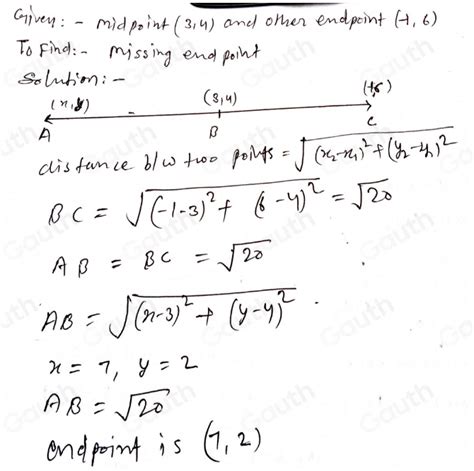 Given: - midpoint (3,4) and other endpoint (-1, 6)
To Find:- Missing end point
Solution: -
(x,y) (3,4) (-1,6)
A B C
distance b/w two points = √(x₂-x₁)²+(y₂-y₁)²
BC = √(-1-3)²+ (6-4)² = √20
AB = BC = √20
AB = √(x-3)² + (y-4)² .
x = 7, y = 2
AB = √20
endpoint is (7,2)
Gauth